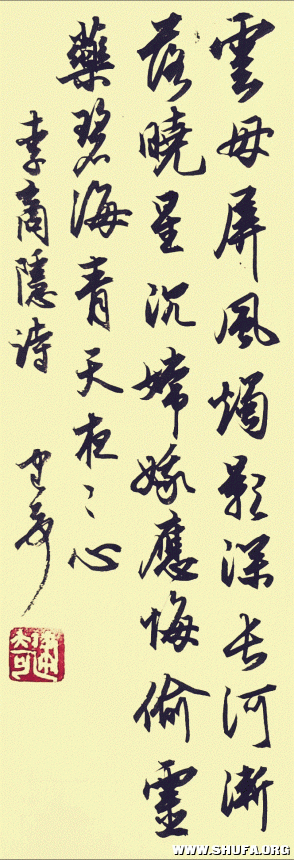 雲母屏風燭影深長河漸
落曉星沉嫦娥應悔偷靈
藥碧海青天夜〻心
李商隱詩
WWW.SHUFA.ORG